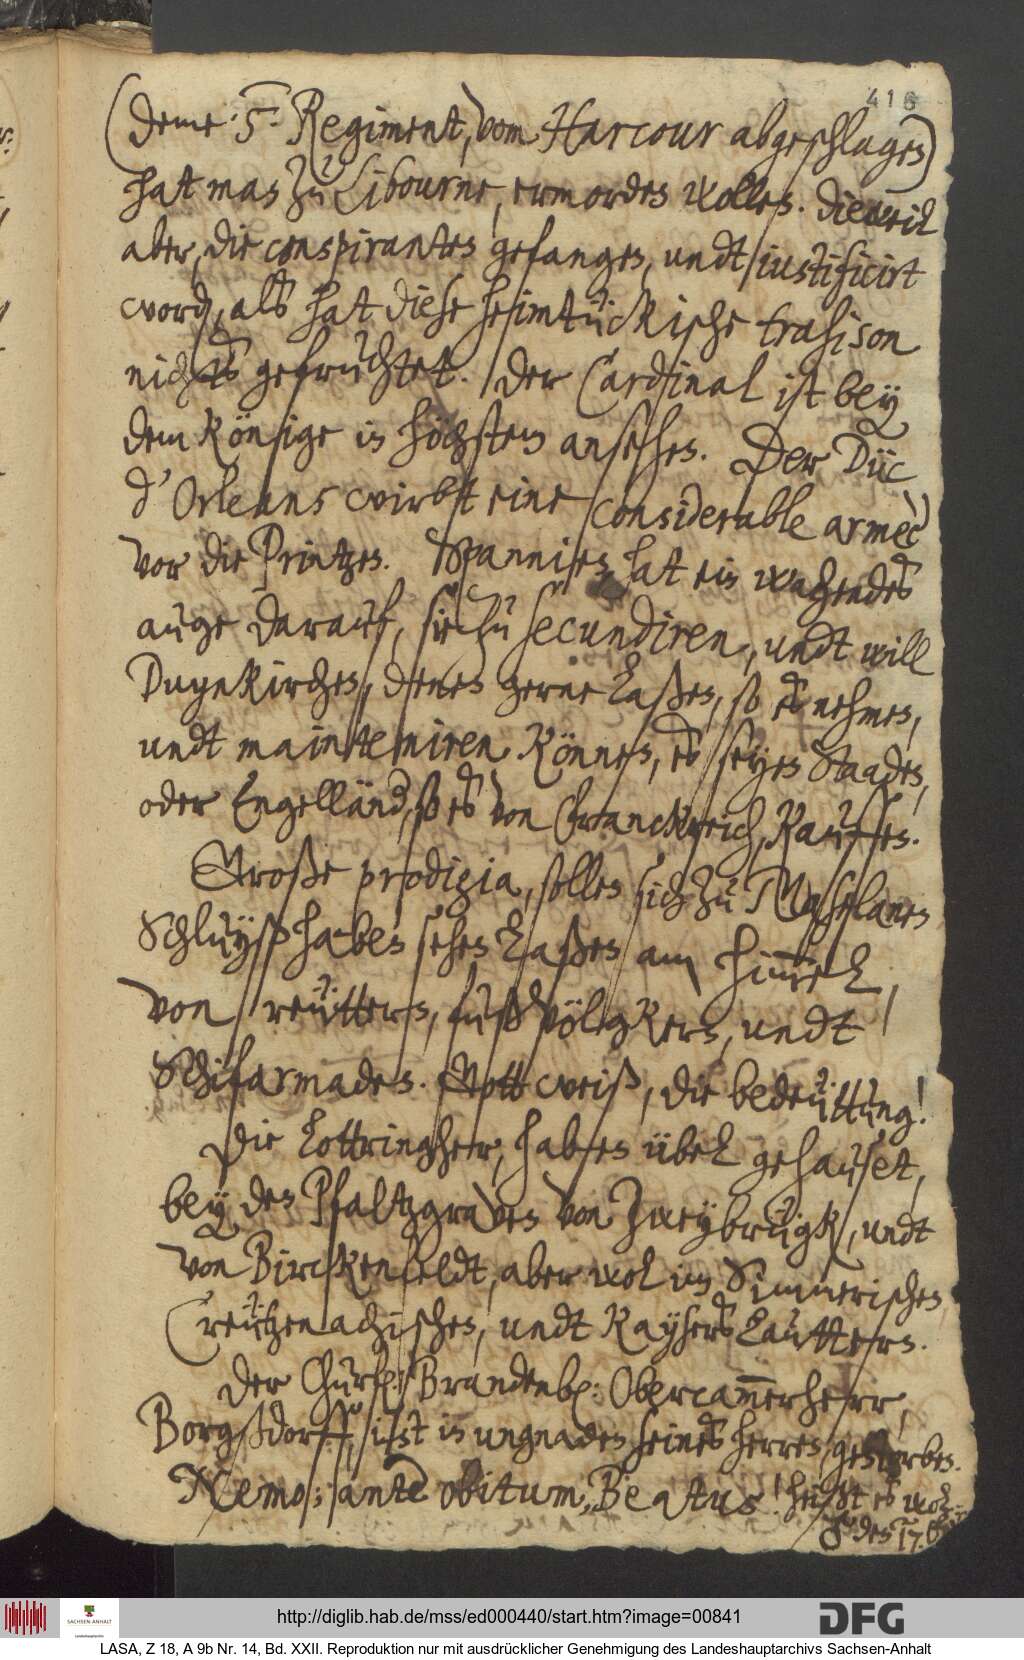 416
(deme 5. Regiment, vom Harcour abgeschlagen)
hat man zu Libourne, ermorden wollen. Dieweil
aber, die conspiranten gefangen, undt iustificirt
word, als hat diese heimtückische trahison
nichts gefruchtet. Der Cardinal ist bey
dem Könige in höchstem ansehen. Der Düc
d'Orleans wirbt eine considerable armèe
vor die Printzen. Spannien, hat ein wachendes
auge darauf, sie zu secundiren, undt will
Duynkirchen, denen gerne laßen, so es nehmen,
undt mainteniren können, es seyen Staaden,
oder Engelländ, so es von Franckreich, kauffen.
Große prodigia, sollen sich zu Maselanes
Schluyß haben sehen laßen am himmel,
von reüttern, fußvölgkern, undt
Schifarmaden. Gott weiß, die bedeüttung!
Die Lottringher, haben übel gehauset,
bey den Pfaltzgraven von Zweybrügk, undt
von Birckenfeldt, aber wol im Simmerischen
Creützenachischen, undt Kaysers Lauttern.
Der Churf: Brandenb: Obercammerherr,
Borgßdorff, ist in ungnaden seines herren, gestorben.
Nemo; ante obitum, Beatus! heißt es wol.
den 17.
http://diglib.hab.de/mss/ed000440/start.htm?image=00841
SACHSEN-ANHALT
DFG
LASA, Z 18, A 9b Nr. 14, Bd. XXII. Reproduktion nur mit ausdrücklicher Genehmigung des Landeshauptarchivs Sachsen-Anhalt